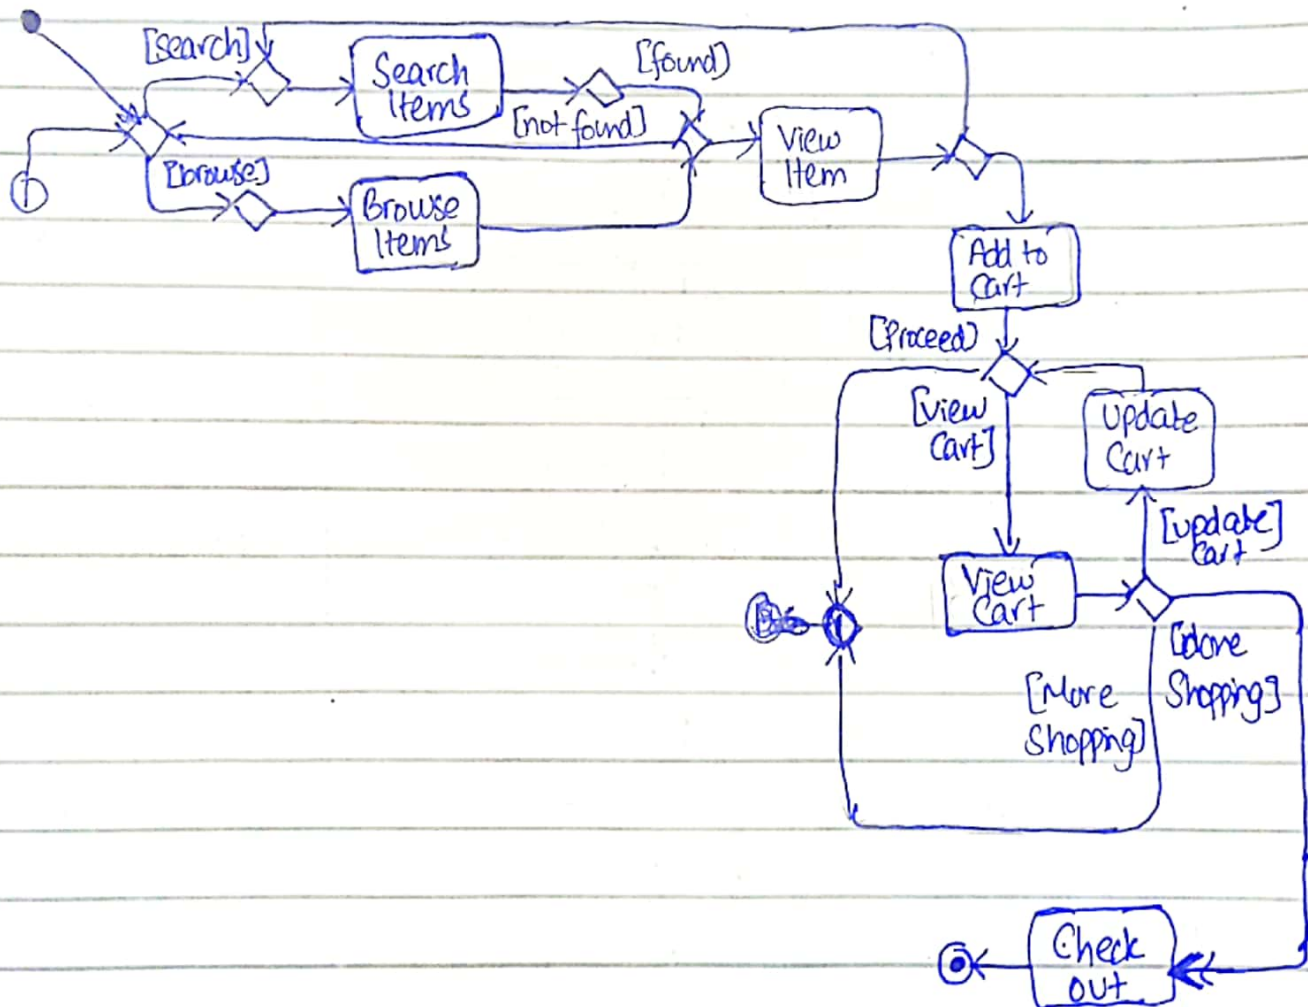 [search]
Search
Items
[found)
[not found]
View
Item
[browse]
Browse
Items
Add to
Cart
[Proceed)
[view
Cart]
Update
Cart
[update]
Cart
View
Cart
[done
Shopping]
[More
Shopping]
Check
out